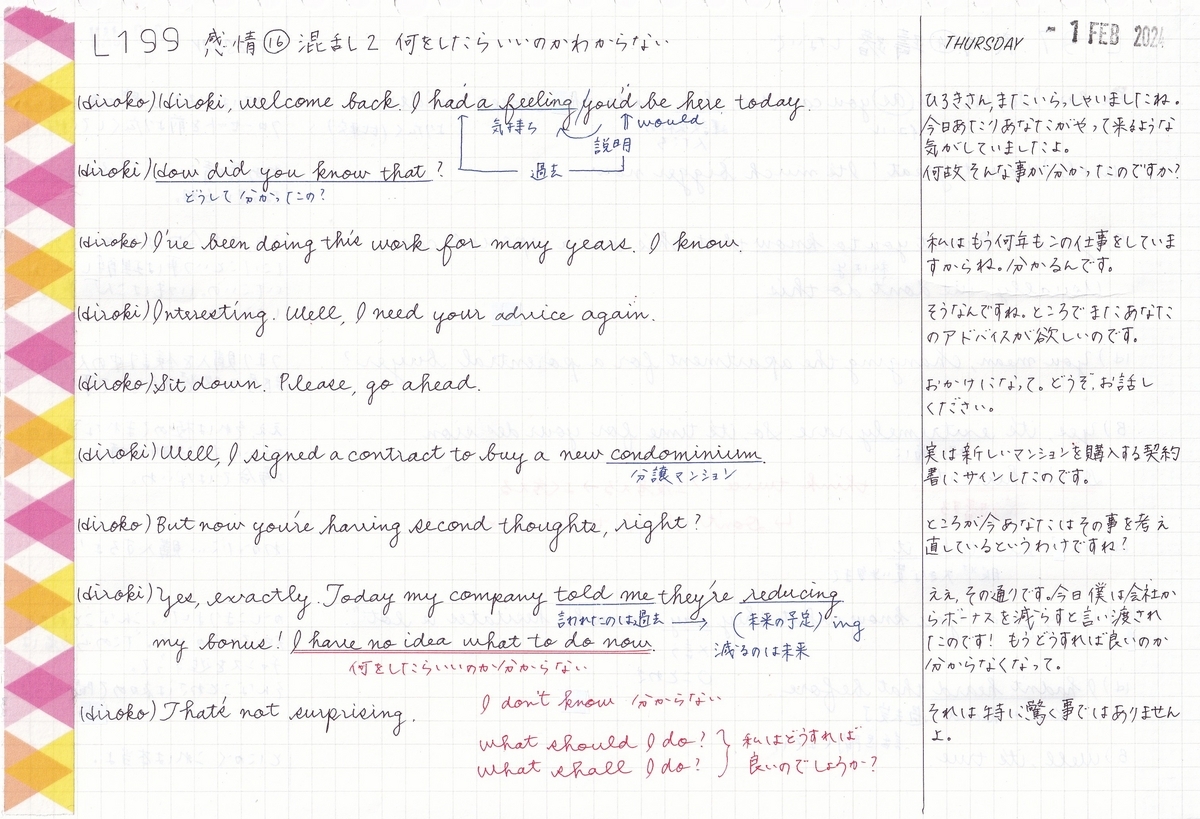 L199 感情⑯ 混乱し2 何をしたらいいのかわからない
THURSDAY - 1 FEB 2024
Hiroko) Hiroki, welcome back. I had a feeling you'd be here today.
気持ち
説明
would
過去
ひろきさん、またいらっしゃいましたね。
今日あたりあなたがやって来るような
気がしていましたよ。
Hiroki) How did you know that?
どうして分かったの?
何故そんな事が分かったのですか?
Hiroko) I've been doing this work for many years. I know.
私はもう何年もこの仕事をしていま
すからね。分かるんです。
Hiroki) Interesting. Well, I need your advice again.
そうなんですね。ところでまたあなた
のアドバイスが欲しいのです。
Hiroko) Sit down. Please, go ahead.
おかけになって。どうぞ、お話し
ください。
Hiroki) Well, I signed a contract to buy a new condominium.
分譲マンション
実は新しいマンションを購入する契約
書にサインしたのです。
Hiroko) But now you're having second thoughts, right?
ところが今あなたはその事を考え
直しているというわけですね?
Hiroki) Yes, exactly. Today my company told me they're reducing
言われたのは過去 → (未来の予定) ing
my bonus! I have no idea what to do now.
減るのは未来
何をしたらいいのか分からない
ええ、その通りです。今日僕は会社か
らボーナスを減らすと言い渡され
たのです! もうどうすれば良いのか
分からなくなって。
Hiroko) That's not surprising.
I don't know 分からない
what should I do?
what shall I do?
私はどうすれば
良いのでしょうか?
それは特に驚く事ではありません
よ。